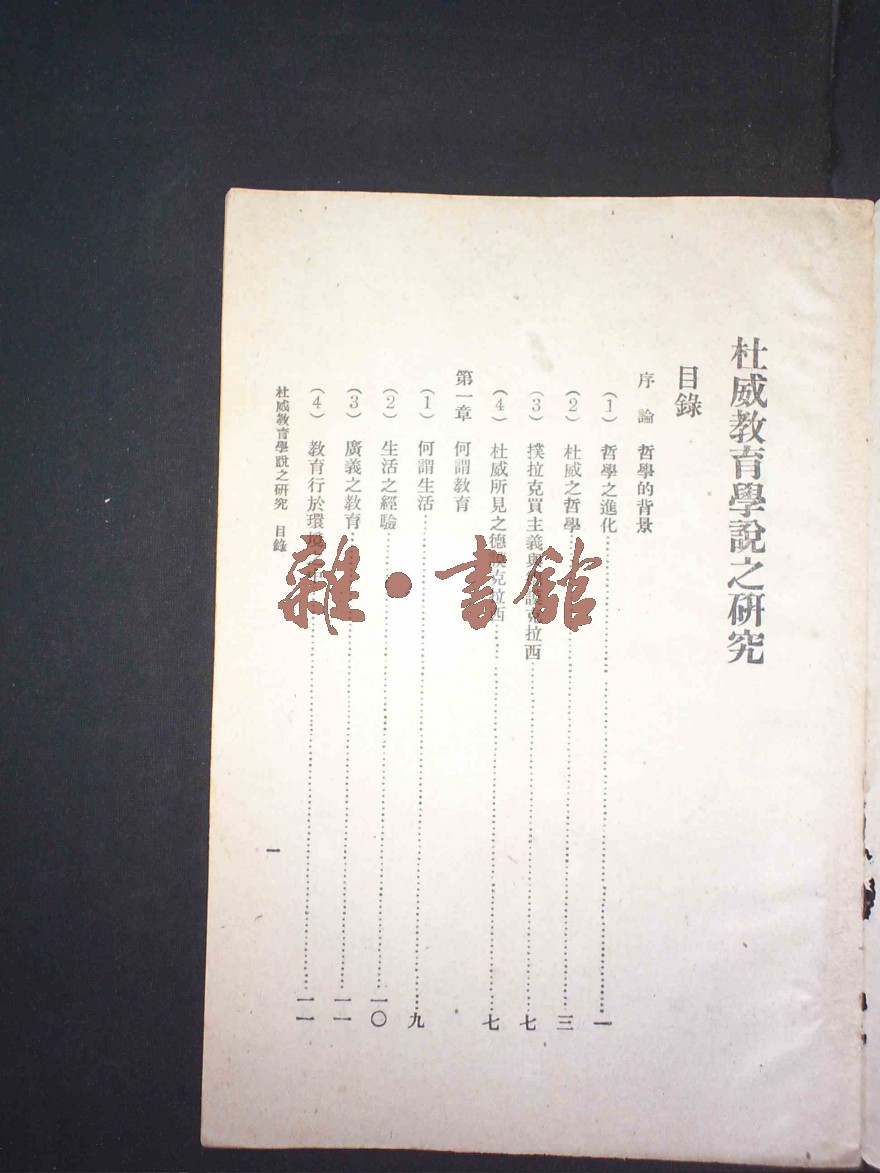 杜威教育學說之研究
目錄
序　論　哲學的背景
（1）哲學之進化……一
（2）杜威之哲學……三
（3）撲拉克買主義與德謨克拉西……七
（4）杜威所見之德謨克拉西……七
第一章　何謂教育
（1）何謂生活……九
（2）生活之經驗……一〇
（3）廣義之教育……一一
（4）教育行於環境之中……一一
杜威教育學說之研究　目錄
一
雜·書館